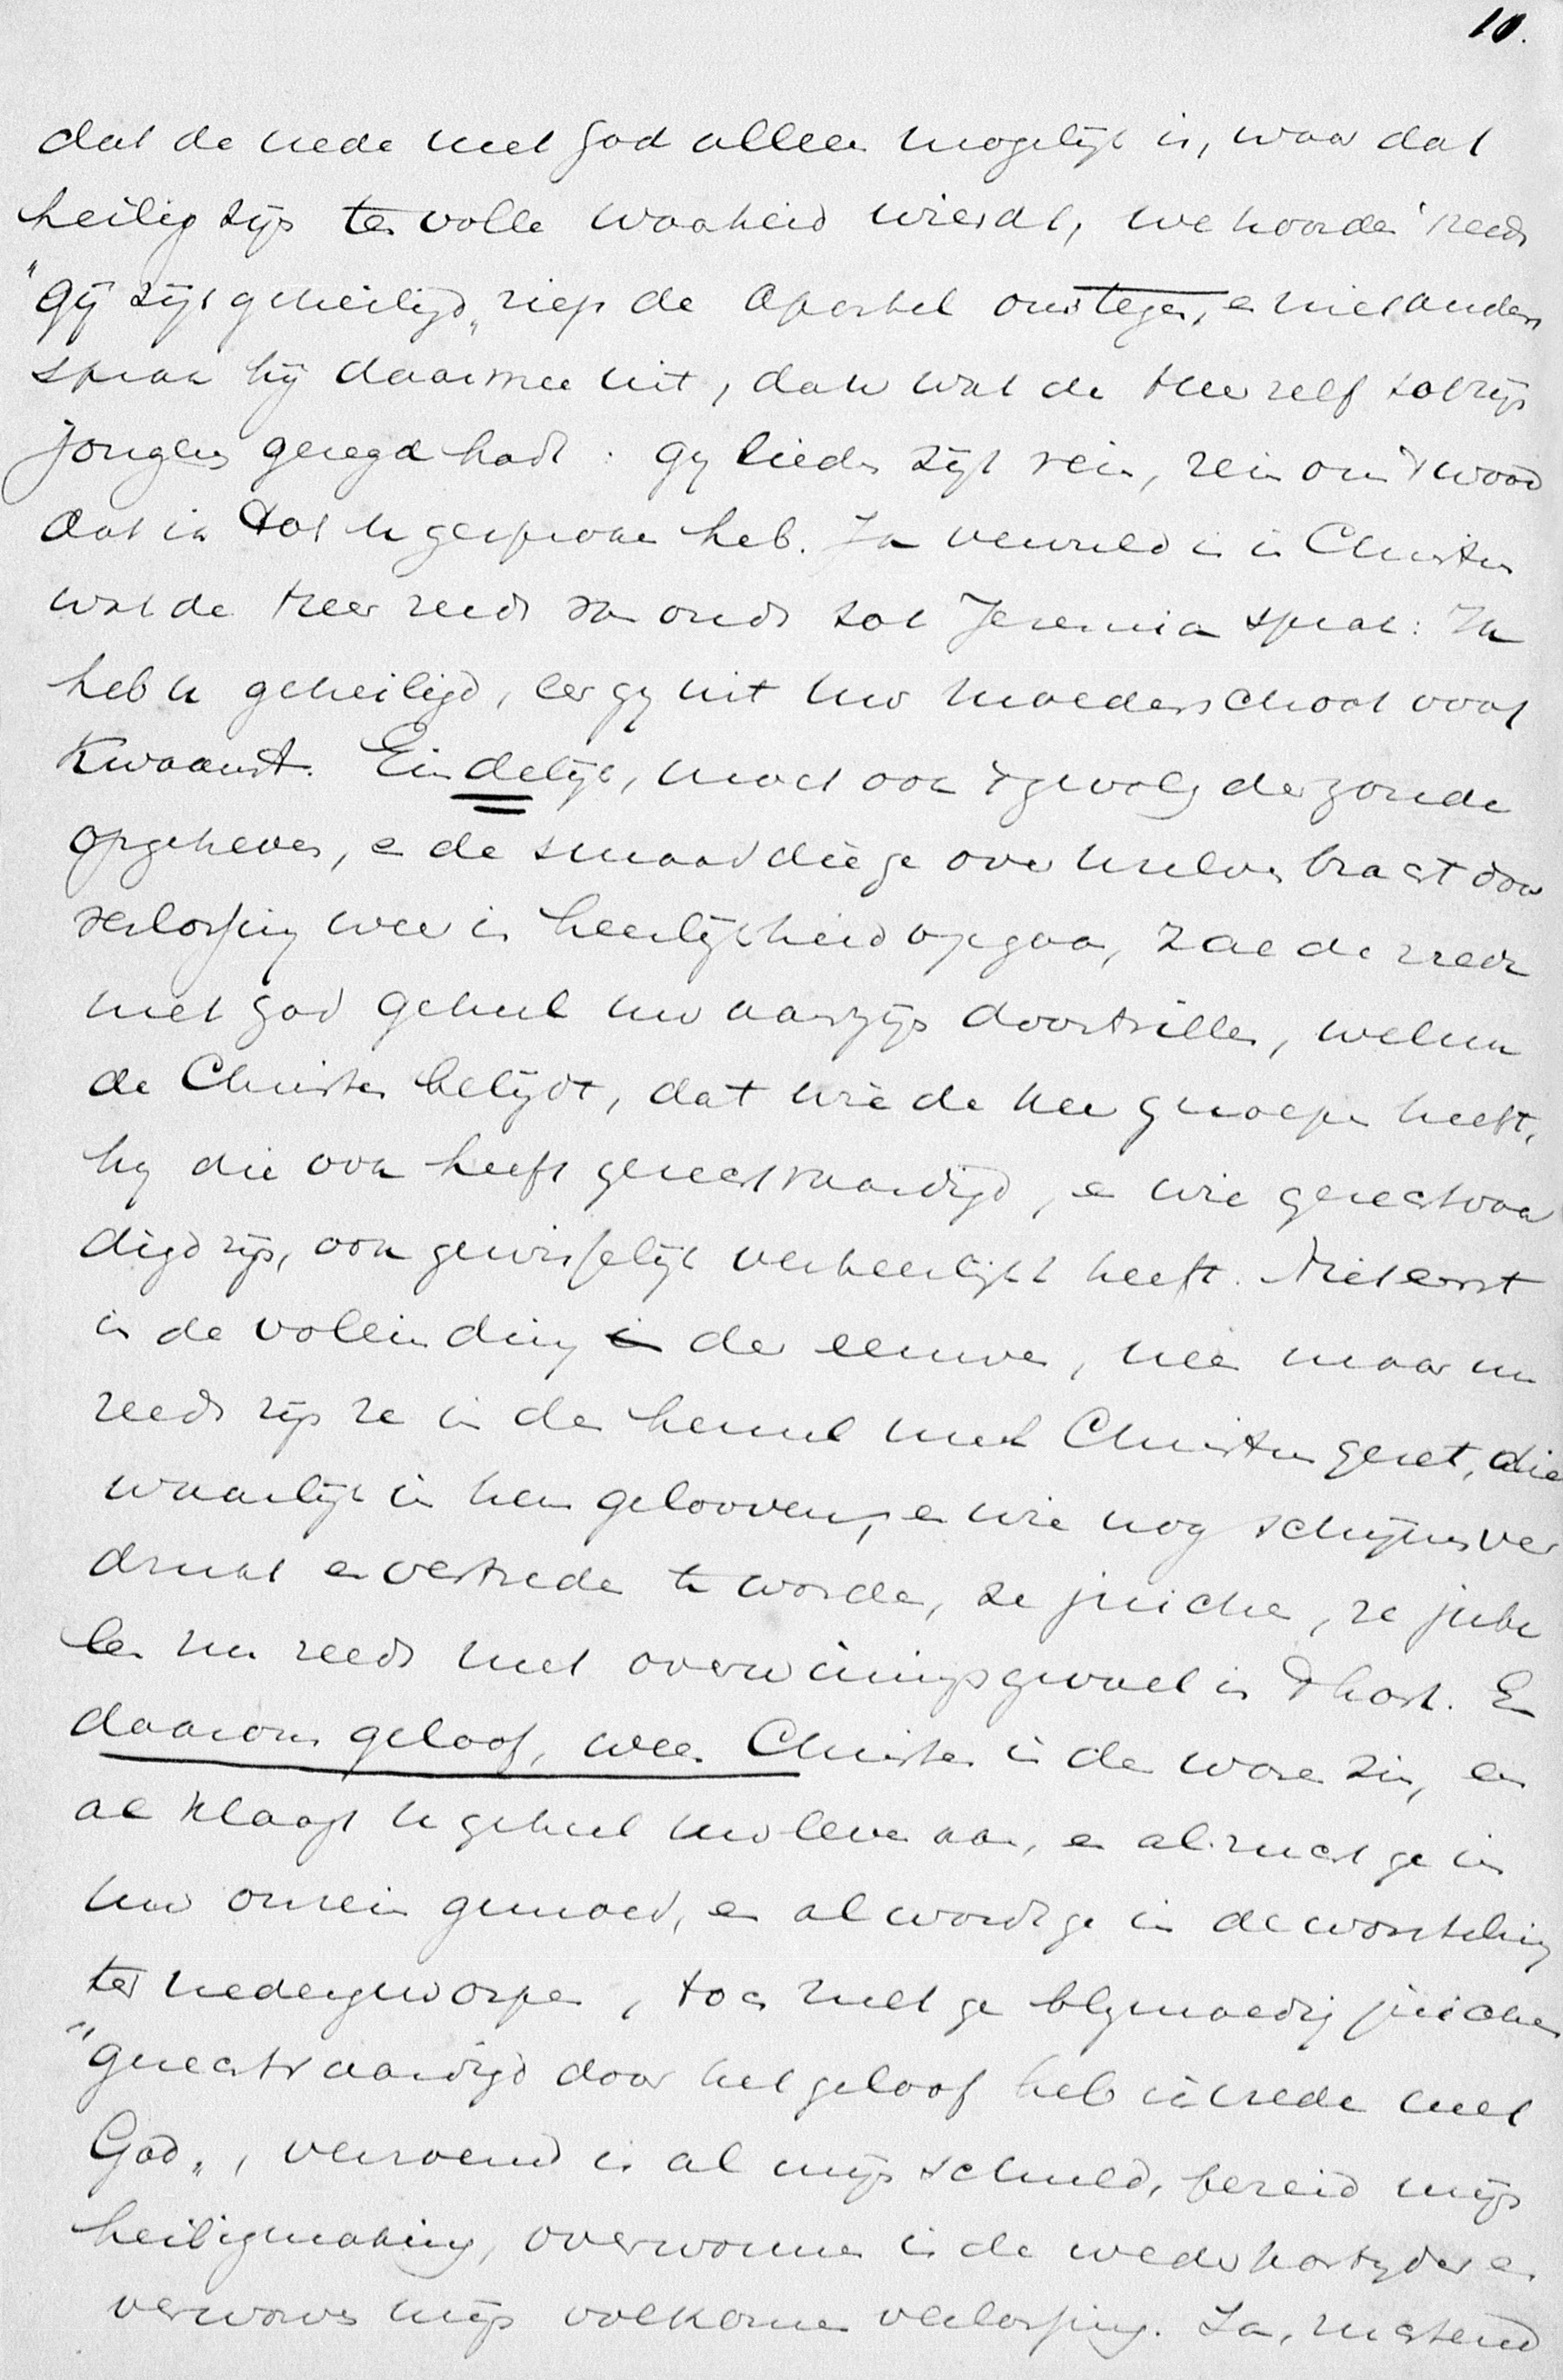 10.
dat de vrede met God alleen mogelijk is, waar dat
heilig zijn ten volle waarheid wierdt, we hoorden reeds
"gij zijt geheiligd" riep de Apostel ons tegen, en niet anders
sprak hij daarmee uit, dan wat de Heer zelf tot zijn
jongeren gezegd hadt: gy lieden zijt rein, rein om 't woord
dat ik tot u gesproken heb. Ja vervuld is in Christus
wat de Heer reeds van ouds tot Jeremia sprak: Ik
heb u geheiligd, eer gy uit uw moederschoot voort
kwaamt. Eindelijk, moet ook 't gevolg der zonde
opgeheven, en de smaad die ge over uzelven bragt door
verlossing weer in heerlijkheid opgaan, zal de vrede
met God geheel uw aanzijn doortrillen, welnu
de Christen belijdt, dat wie de Heer geroepen heeft,
hy die ook heeft gerechtvaardigd, en wie gerechtvaar
digd zijn, ook gewisselijk verheerlijkt heeft. Niet eerst
in de volleinding der eeuwen, neen maar nu
reeds zijn ze in den hemel met Christus gezet, die
waarlijk in hem gelooven, en wie nog schijnen ver
drukt en vertreden te worden, ze juichen, ze jube
len nu reeds met overwinningsgevoel in 't hart. En
daarom geloof, wees Christen in den waren zin, en
al klaagt u geheel uw leven aan, en al zucht ge in
uw onrein gemoed, en al wordt ge in de worsteling
ter nedergeworpen, toch zult ge blymoedig juichen
"gerechtvaardigd door het geloof heb ik vrede met
God", verzoend is al mijn schuld, bereid mijn
heiligmaking, overwonnen is de wederpartyder en
verworven mijn volkomen verlossing. Ja, rustend